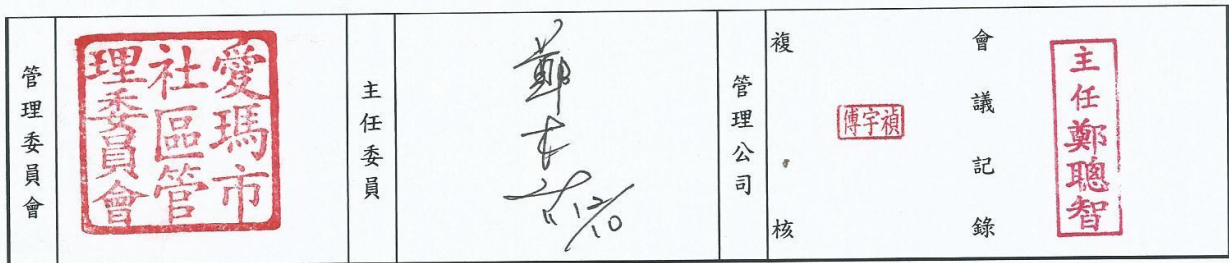 管理委員會
愛瑪市
社區管
理委員會
主任委員
12/10
管理公司
複核
傅宇禎
會議記錄
主任鄭聰智